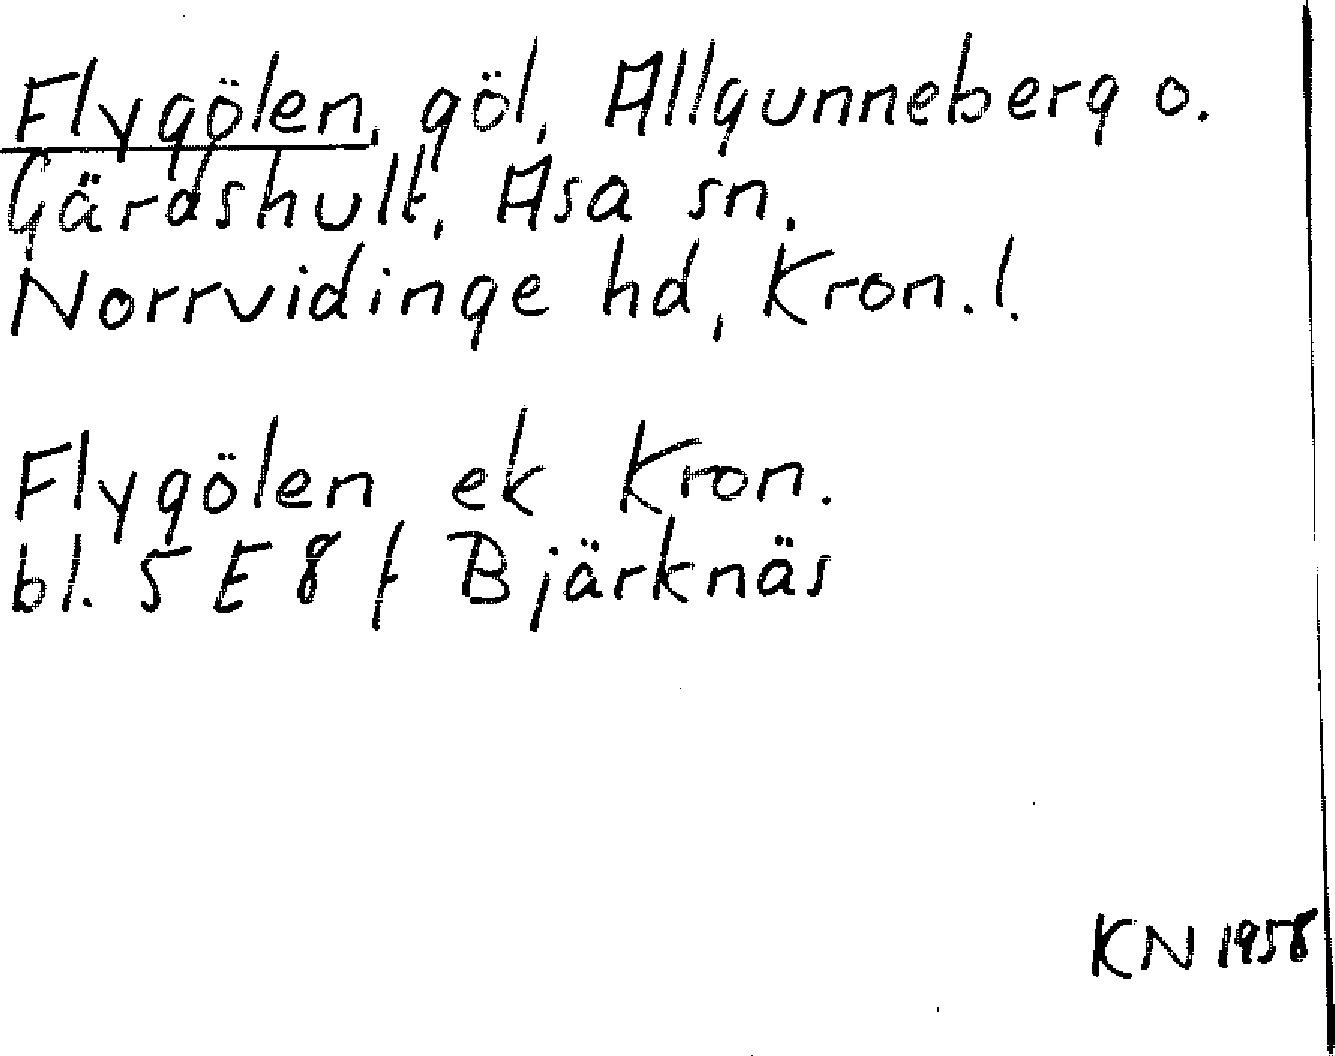 Flygölen, göl, Allgunneberg o.
Gärdshult, Asa sn.
Norrvidinge hd, Kron. l.
Flygölen ek Kron.
bl. 5 E 8 f Bjärknäs
KN 1958